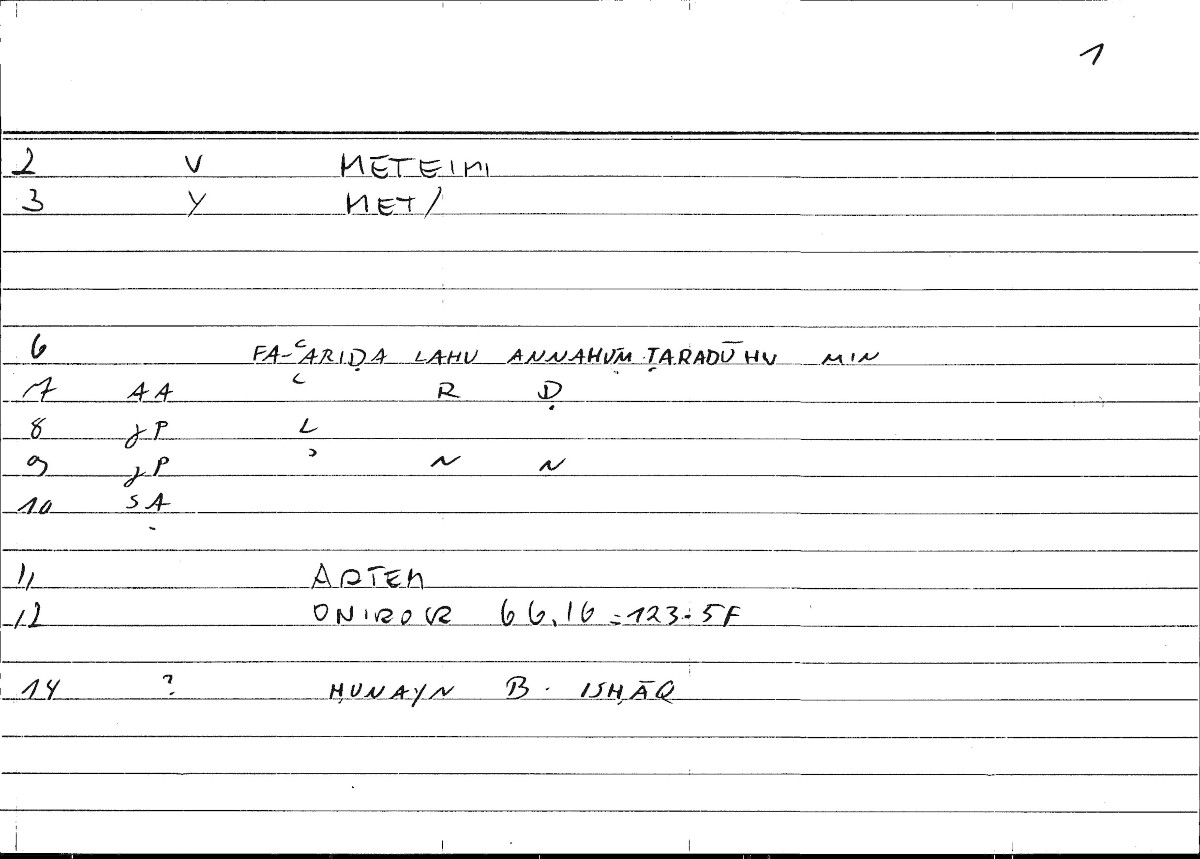 1
2 V METEIMI
3 Y MET/
6 FA-ʿARIḌA LAHU ANNAHUM ṬARADŪHU MIN
7 AA ʿ R Ḍ
8 JP L
9 JP ʾ N N
10 SA
11 ARTEM
12 ONIROCR 66.16 = 123.5F
14 ? ḤUNAYN B. ISḤĀQ